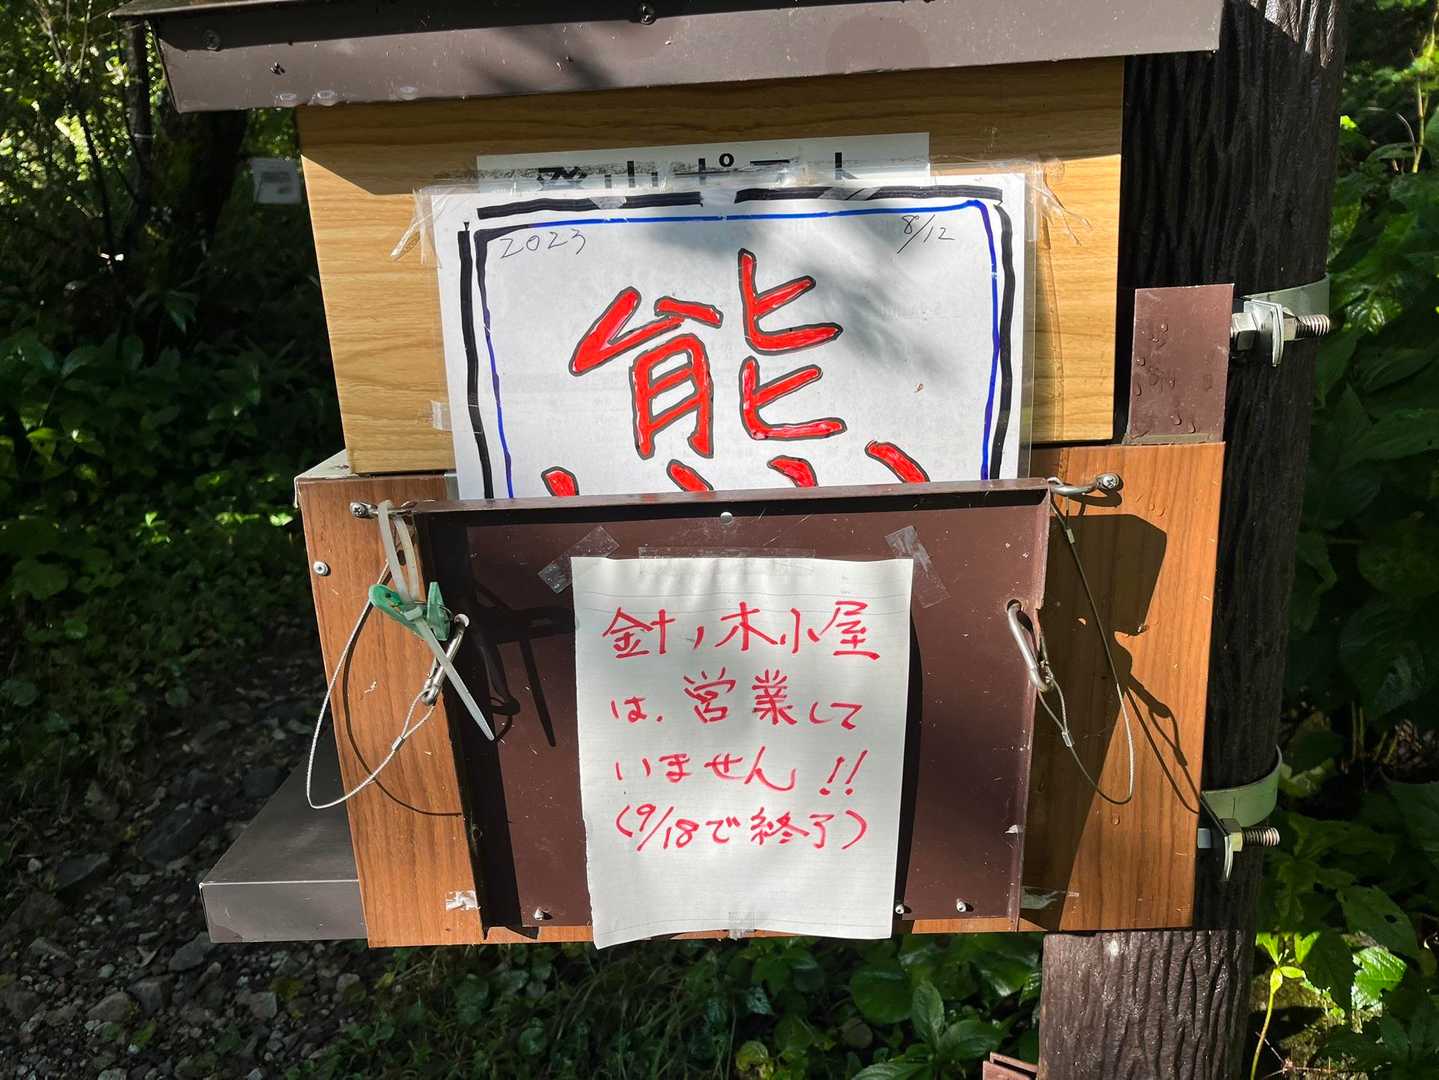 登山ポスト
2023 8/12
熊
針ノ木小屋
は、営業して
いません!!
(9/18で終了)